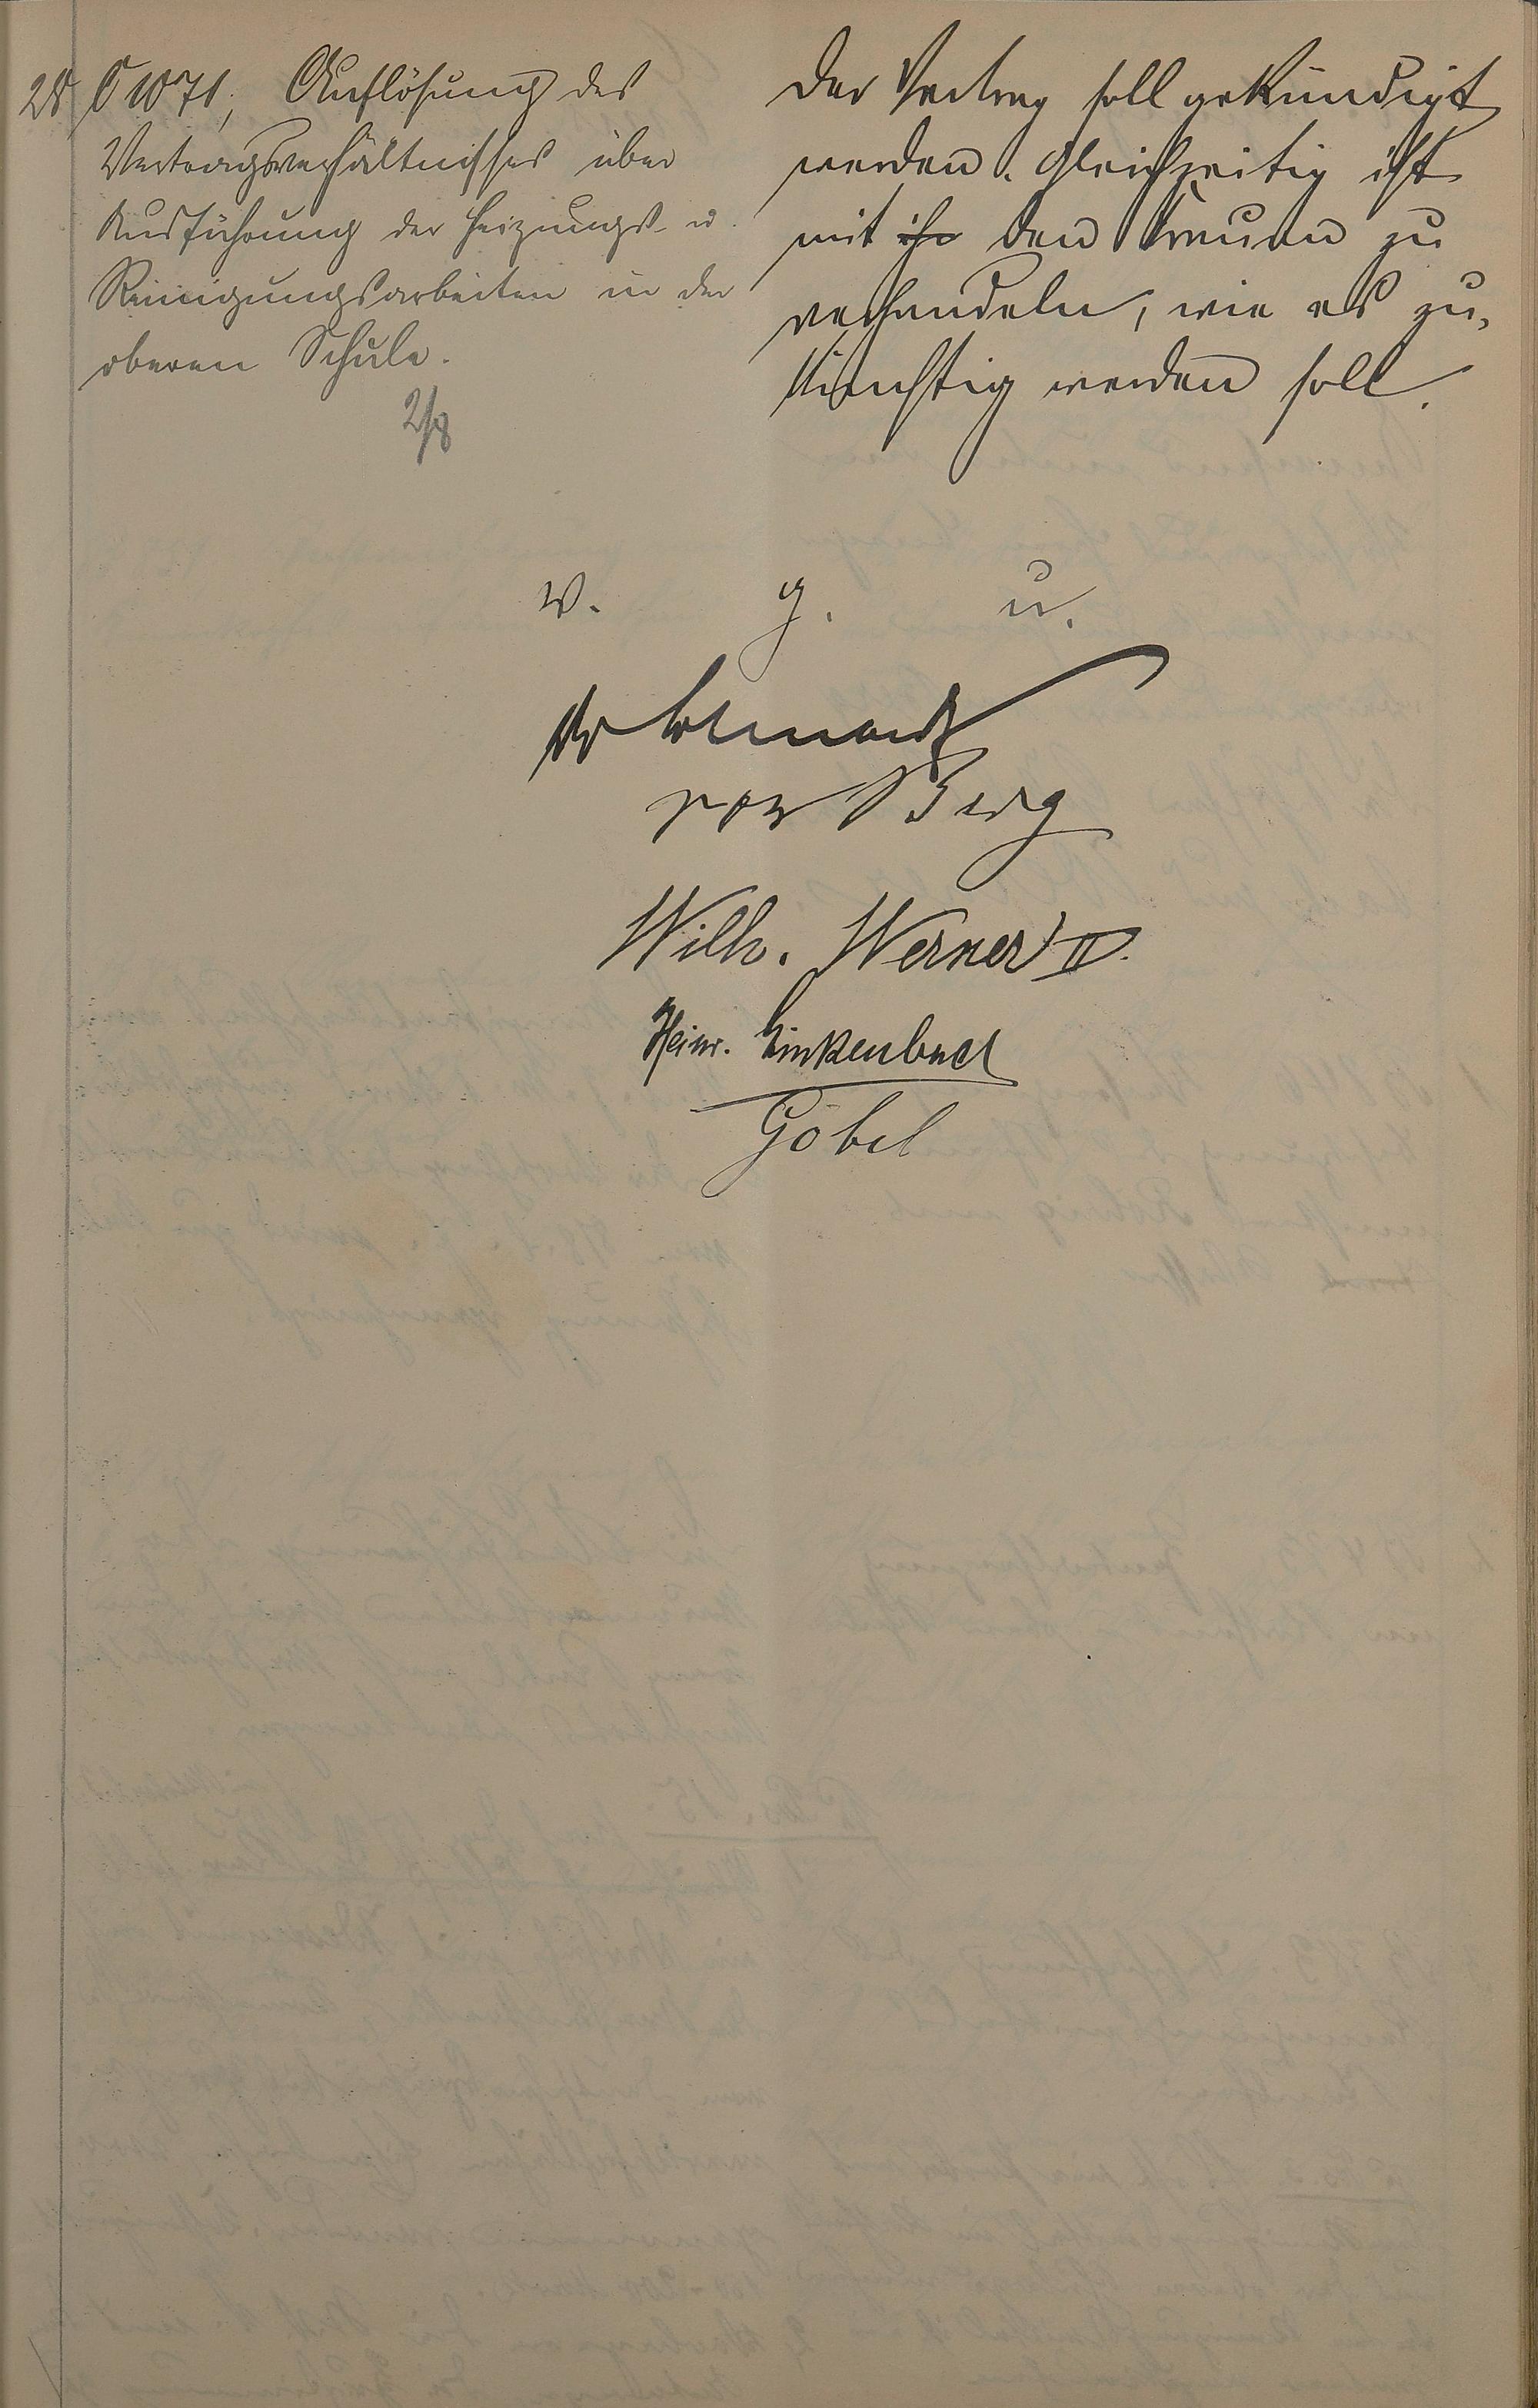 28, C 1071, Auflösung des
Vertragsverhältnisses über
Ausführung der Heizungs- u.
Reinigungsarbeiten in der
oberen Schule.
2/8
Der Vertrag soll gekündigt
werden. Gleichzeitig ist
mit ihr den Frauen zu
verhandeln, wie es zu-
künftig werden soll.
w. g. u.
von Berg
Wilh. Werner II.
Heinr. Linkenbach
Göbel